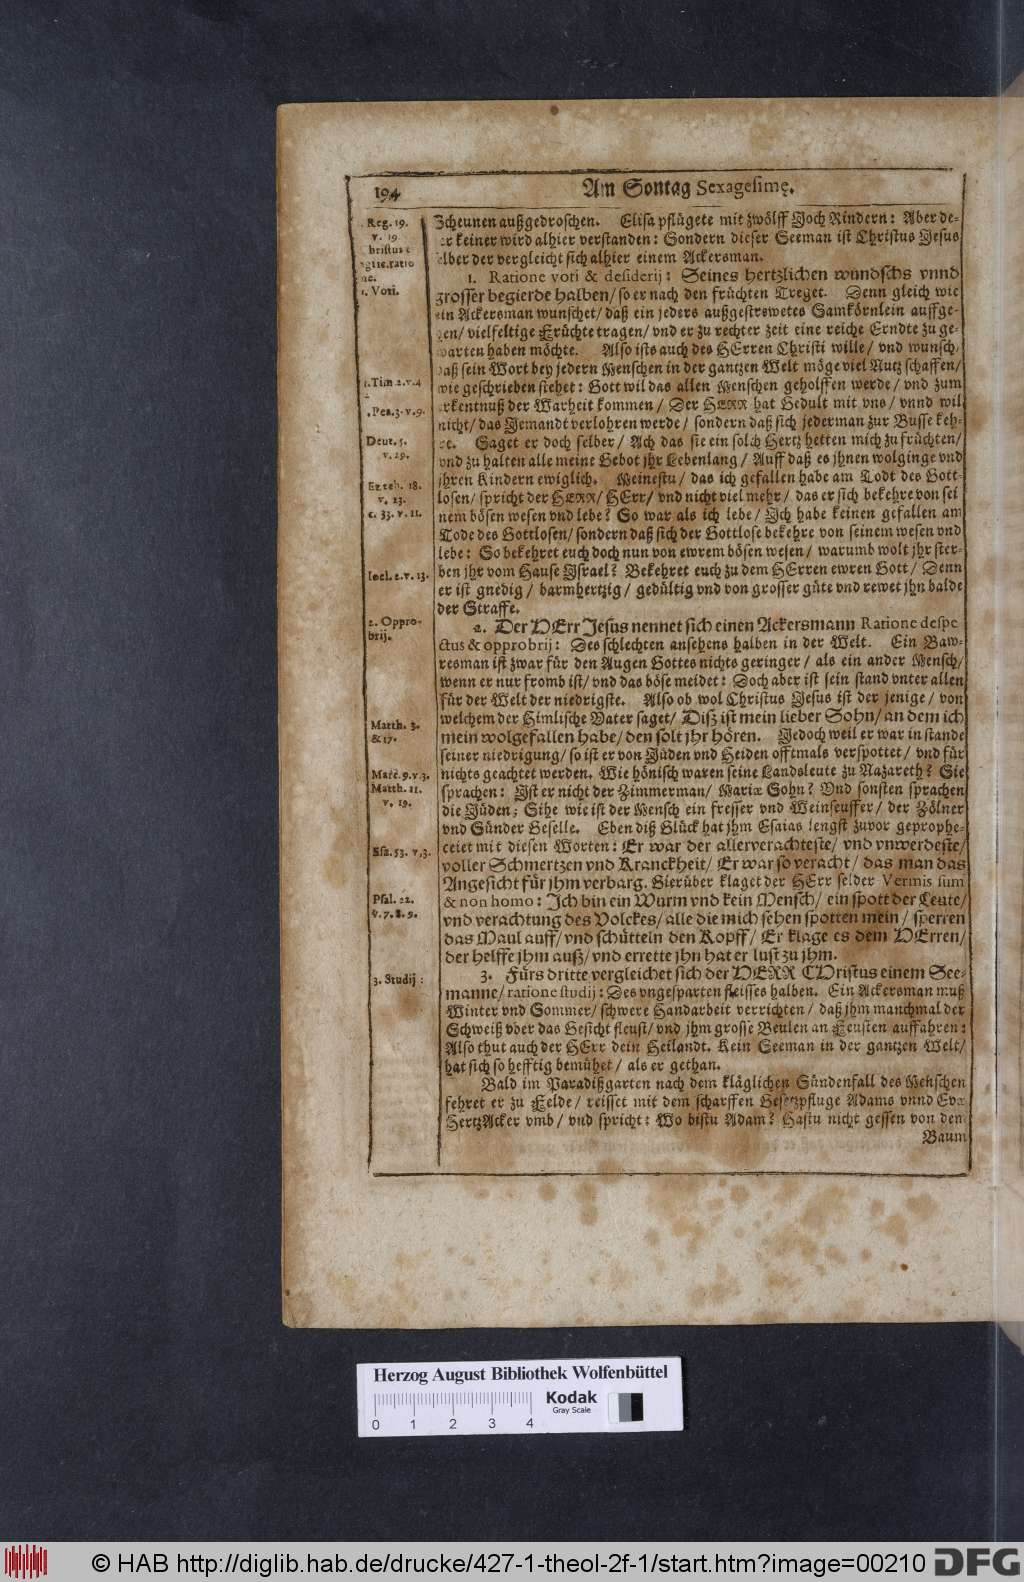 194
Am Sontag Sexagesimę.
Reg. 19.
v. 19
1. Voti.
1. Tim. 2. v. 4
Pet. 3. v. 9.
Deut. 5.
v. 29.
Ezech. 18.
v. 23.
c. 33. v. 11.
Ioel. 2. v. 13.
2. Oppro-
brij.
Matth. 3.
& 17.
Marc. 9. v. 3.
Matth. 11.
v. 19.
Esa. 53. v. 3.
Psal. 22.
v. 7. 8. 9.
3. Studij:
Scheunen außgedroschen. Elisa pflügete mit zwölff Joch Rindern: Aber de-
er keiner wird alhier verstanden: Sondern dieser Seeman ist Christus Jesus
selber der vergleicht sich alhier einem Ackersman.
1. Ratione voti & desiderij: Seines hertzlichen wundschs vnnd
grosser begierde halben/ so er nach den früchten Treget. Denn gleich wie
ein Ackersman wunschet/ daß ein jeders außgestrewetes Samkörnlein auffge-
hen/ vielfeltige Früchte tragen/ vnd er zu rechter zeit eine reiche Erndte zu ge-
warten haben möchte. Also ists auch des HErren Christi wille/ vnd wunsch/
daß sein Wort bey jedern Menschen in der gantzen Welt möge viel Nutz schaffen/
wie geschrieben stehet: Gott wil das allen Menschen geholffen werde/ vnd zum
erkentnuß der Warheit kommen/ Der HERR hat Gedult mit vns/ vnnd wil
nicht/ das Jemandt verlohren werde/ sondern daß sich jederman zur Busse keh-
re. Saget er doch selber/ Ach das sie ein solch Hertz hetten mich zu früchten/
vnd zu halten alle meine Gebot jhr Lebenlang/ Auff daß es jhnen wolginge vnd
jhren Kindern ewiglich. Meinestu/ das ich gefallen habe am Todt des Gott-
losen/ spricht der HERR/ HErr/ vnd nicht viel mehr/ das er sich bekehre von sei
nem bösen wesen vnd lebe? So war als ich lebe/ Ich habe keinen gefallen am
Tode des Gottlosen/ sondern daß sich der Gottlose bekehre von seinem wesen vnd
lebe: So bekehret euch doch nun von ewrem bösen wesen/ warumb wolt jhr ster-
ben jhr vom Hause Israel? Bekehret euch zu dem HErren ewren Gott/ Denn
er ist gnedig/ barmhertzig/ gedültig vnd von grosser güte vnd rewet jhn balde
der Straffe.
2. Der HErr Jesus nennet sich einen Ackersmann Ratione despe
ctus & opprobrij: Des schlechten ansehens halben in der Welt. Ein Baw-
resman ist zwar für den Augen Gottes nichts geringer/ als ein ander Mensch/
wenn er nur fromb ist/ vnd das böse meidet: Doch aber ist sein stand vnter allen
für der Welt der niedrigste. Also ob wol Christus Jesus ist der jenige/ von
welchem der Himlische Vater saget/ Diß ist mein lieber Sohn/ an dem ich
mein wolgefallen habe/ den solt jhr hören. Jedoch weil er war in stande
seiner niedrigung/ so ist er von Jüden vnd Heiden offtmals verspottet/ vnd für
nichts geachtet werden. Wie hönisch waren seine Landsleute zu Nazareth? Sie
sprachen: Ist er nicht der Zimmerman/ Mariæ Sohn? Vnd sonsten sprachen
die Jüden; Sihe wie ist der Mensch ein fresser vnd Weinseuffer/ der Zölner
vnd Sünder Geselle. Eben diß Glück hat jhm Esaias lengst zuvor geprophe-
ceiet mit diesen Worten: Er war der allerverachteste/ vnd vnwerdeste/
voller Schmertzen vnd Kranckheit/ Er war so veracht/ das man das
Angesicht für jhm verbarg. Hierüber klaget der HErr selder Vermis sum
& non homo: Ich bin ein Wurm vnd kein Mensch/ ein spott der Leute/
vnd verachtung des Volckes/ alle die mich sehen spotten mein/ sperren
das Maul auff/ vnd schütteln den Kopff/ Er klage es dem HErren/
der helffe jhm auß/ vnd errette jhn hat er lust zu jhm.
3. Fürs dritte vergleichet sich der HERR CHristus einem See-
manne/ ratione studij: Des vngesparten fleisses halben. Ein Ackersman muß
Winter vnd Sommer/ schwere Handarbeit verrichten/ daß jhm manchmal der
Schweiß vber das Gesicht fleust/ vnd jhm grosse Beulen an Feusten auffahren:
Also thut auch der HErr dein Heilandt. Kein Seeman in der gantzen Welt/
hat sich so hefftig bemühet/ als er gethan.
Bald im Paradißgarten nach dem kläglichen Sündenfall des Menschen
fehret er zu Felde/ reisset mit dem scharffen Gesetzpfluge Adams vnnd Evæ
HertzAcker vmb/ vnd spricht: Wo bistu Adam? Hastu nicht gessen von dem
Baum
Herzog August Bibliothek Wolfenbüttel
Kodak
Gray Scale
0 1 2 3 4
© HAB http://diglib.hab.de/drucke/427-1-theol-2f-1/start.htm?image=00210
DFG